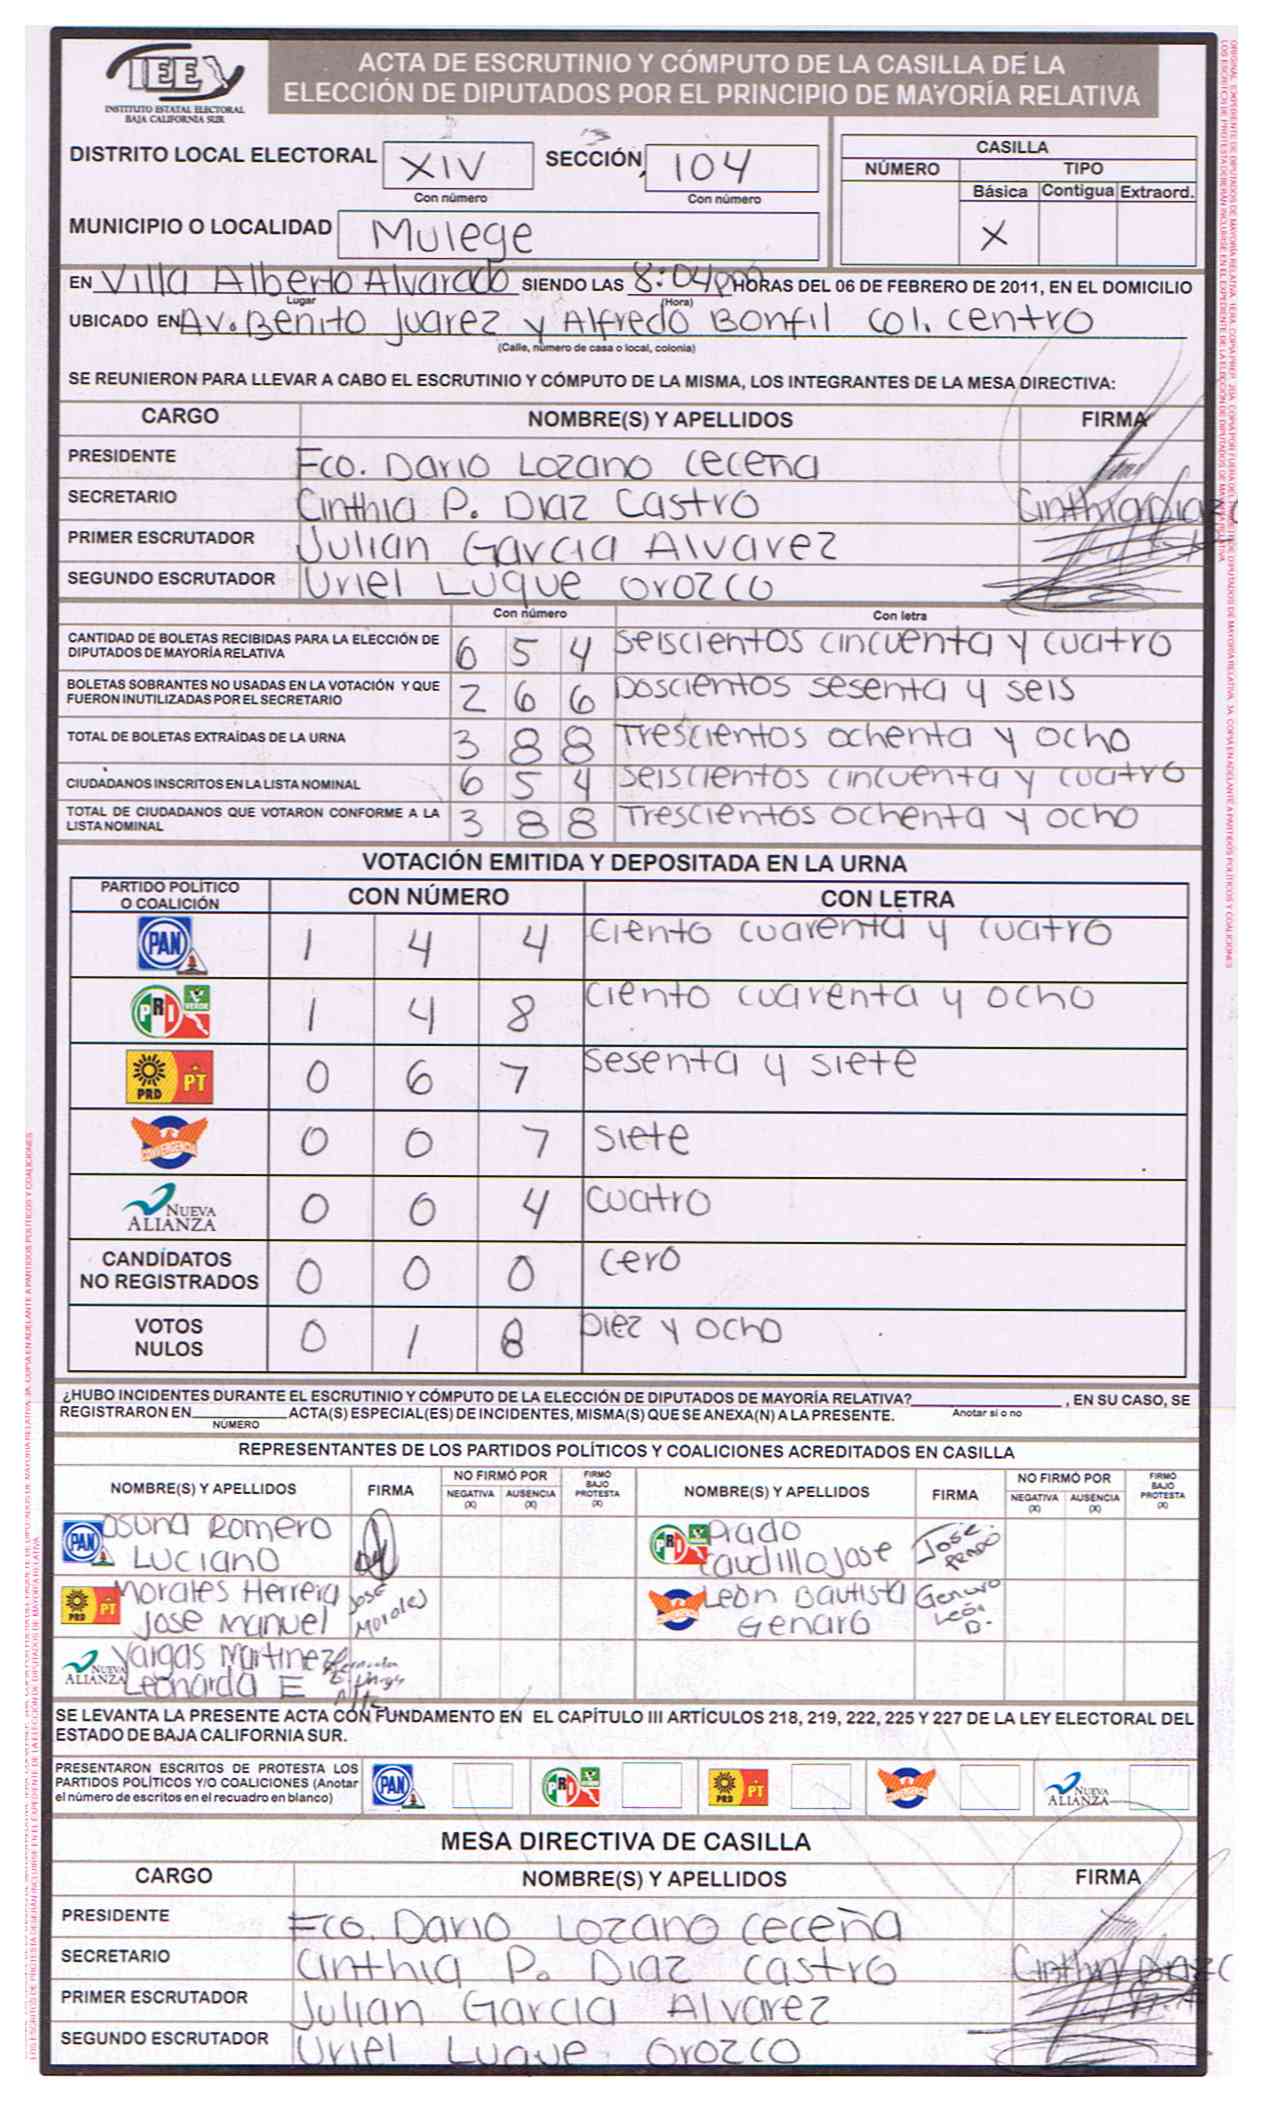 IEE
INSTITUTO ESTATAL ELECTORAL
BAJA CALIFORNIA SUR
ACTA DE ESCRUTINIO Y CÓMPUTO DE LA CASILLA DE LA
ELECCIÓN DE DIPUTADOS POR EL PRINCIPIO DE MAYORÍA RELATIVA
DISTRITO LOCAL ELECTORAL XIV SECCIÓN 104
Con número Con número
MUNICIPIO O LOCALIDAD Mulege
CASILLA
NÚMERO TIPO
Básica Contigua Extraord.
X
EN Villa Alberto Alvarado SIENDO LAS 8:04pm HORAS DEL 06 DE FEBRERO DE 2011, EN EL DOMICILIO
Lugar (Hora)
UBICADO EN Av. Benito Juarez y Alfredo Bonfil col. centro
(Calle, número de casa o local, colonia)
SE REUNIERON PARA LLEVAR A CABO EL ESCRUTINIO Y CÓMPUTO DE LA MISMA, LOS INTEGRANTES DE LA MESA DIRECTIVA:
CARGO NOMBRE(S) Y APELLIDOS FIRMA
PRESIDENTE Fco. Dario Lozano ceceña
SECRETARIO Cinthia P. Diaz Castro Cinthia Diaz C
PRIMER ESCRUTADOR Julian Garcia Alvarez
SEGUNDO ESCRUTADOR Uriel Luque orozco
Con número Con letra
CANTIDAD DE BOLETAS RECIBIDAS PARA LA ELECCIÓN DE
DIPUTADOS DE MAYORÍA RELATIVA 6 5 4 seiscientos cincuenta y cuatro
BOLETAS SOBRANTES NO USADAS EN LA VOTACIÓN Y QUE
FUERON INUTILIZADAS POR EL SECRETARIO 2 6 6 Doscientos sesenta y seis
TOTAL DE BOLETAS EXTRAÍDAS DE LA URNA 3 8 8 Trescientos ochenta y ocho
CIUDADANOS INSCRITOS EN LA LISTA NOMINAL 6 5 4 seiscientos cincuenta y cuatro
TOTAL DE CIUDADANOS QUE VOTARON CONFORME A LA
LISTA NOMINAL 3 8 8 Trescientos ochenta y ocho
VOTACIÓN EMITIDA Y DEPOSITADA EN LA URNA
PARTIDO POLÍTICO
O COALICIÓN CON NÚMERO CON LETRA
PAN 1 4 4 ciento cuarenta y cuatro
PRI VERDE 1 4 8 ciento cuarenta y ocho
PRD PT 0 6 7 sesenta y siete
CONVERGENCIA 0 0 7 siete
NUEVA ALIANZA 0 0 4 cuatro
CANDIDATOS
NO REGISTRADOS 0 0 0 cero
VOTOS
NULOS 0 1 8 Diez y ocho
¿HUBO INCIDENTES DURANTE EL ESCRUTINIO Y CÓMPUTO DE LA ELECCIÓN DE DIPUTADOS DE MAYORÍA RELATIVA? , EN SU CASO, SE
REGISTRARON EN ACTA(S) ESPECIAL(ES) DE INCIDENTES, MISMA(S) QUE SE ANEXA(N) A LA PRESENTE. Anotar si o no
NÚMERO
REPRESENTANTES DE LOS PARTIDOS POLÍTICOS Y COALICIONES ACREDITADOS EN CASILLA
NOMBRE(S) Y APELLIDOS FIRMA NO FIRMÓ POR NEGATIVA (X) AUSENCIA (X) FIRMÓ BAJO PROTESTA (X) NOMBRE(S) Y APELLIDOS FIRMA NO FIRMÓ POR NEGATIVA (X) AUSENCIA (X) FIRMÓ BAJO PROTESTA (X)
PAN Osuna Romero Luciano
PRI Prado Caudillo Jose Jose Prado
PRD PT Morales Herrera Jose Manuel José Morales
Leon Bautista Genaro Genaro León B.
NUEVA ALIANZA Vargas Martinez Leonarda E
SE LEVANTA LA PRESENTE ACTA CON FUNDAMENTO EN EL CAPÍTULO III ARTÍCULOS 218, 219, 222, 225 Y 227 DE LA LEY ELECTORAL DEL
ESTADO DE BAJA CALIFORNIA SUR.
PRESENTARON ESCRITOS DE PROTESTA LOS
PARTIDOS POLÍTICOS Y/O COALICIONES (Anotar
el número de escritos en el recuadro en blanco)
PAN PRI PRD PT NUEVA ALIANZA
MESA DIRECTIVA DE CASILLA
CARGO NOMBRE(S) Y APELLIDOS FIRMA
PRESIDENTE Fco. Dario Lozano Ceceña
SECRETARIO Cinthia P. Diaz castro Cinthia Diaz C
PRIMER ESCRUTADOR Julian Garcia Alvarez
SEGUNDO ESCRUTADOR Uriel Luque orozco